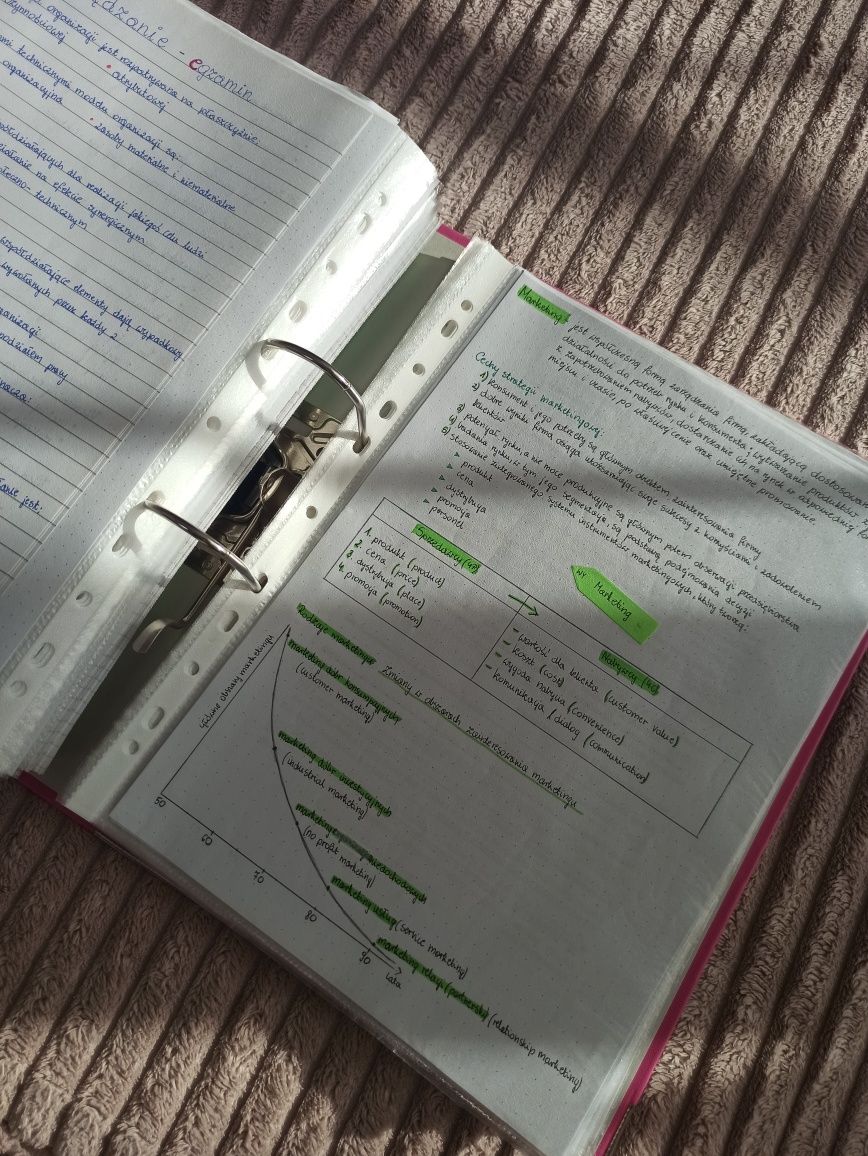 egzamin
organizacji jest rozpatrywana na płaszczyźnie:
• atrybutowej
technicznymi modelu organizacji są:
organizacyjna • zasoby materialne i niematerialne
współdziałających dla realizacji jakiegoś celu ludzi
działanie na efekcie synergicznym
technicznym
współdziałające elementy dają wypadkową
wywołanych przez każdy z
podziałem pracy
jest:
Marketing: jest współczesną formą zarządzania firmą, zakładającą
działalności do potrzeb rynku i konsumenta; wytwarzanie produktów
z zapotrzebowaniem nabywców, dostarczanie ich na rynek w odpowiednim
miejscu i czasie, po właściwej cenie oraz umiejętne promowanie.
Cechy strategii marketingowej:
1) konsument i jego potrzeby są głównym obiektem zainteresowania firmy
2) dobre wyniki firma osiąga utożsamiając swoje sukcesy z korzyściami i zadowoleniem
klientów
3) potencjał rynku, a nie moce produkcyjne są głównym polem obserwacji przedsiębiorstwa
4) badania rynku w tym jego segmentacja, są podstawą podejmowania decyzji
5) stosowanie zintegrowanego systemu instrumentów marketingowych, który tworzą:
▸ produkt
▸ cena
▸ dystrybucja
▸ promocja
▸ personel
Sprzedawcy (4P)
1. produkt (product)
2. cena (price)
3. dystrybucja (place)
4. promocja (promotion)
NY Marketing
Nabywcy (4C)
- wartość dla klienta (customer value)
- koszt (cost)
- wygoda nabycia (convenience)
- komunikacja / dialog (communication)
Zmiany w obszarach zainteresowania marketingu
główne obszary marketingu
Rodzaje marketingu
marketing dóbr konsumpcyjnych
(customer marketing)
marketing dóbr inwestycyjnych
(industrial marketing)
niedochodowych
(no profit marketing)
marketing usług (service marketing)
marketing relacji (partnerski) (relationship marketing)
50
60
70
80
90
Lata